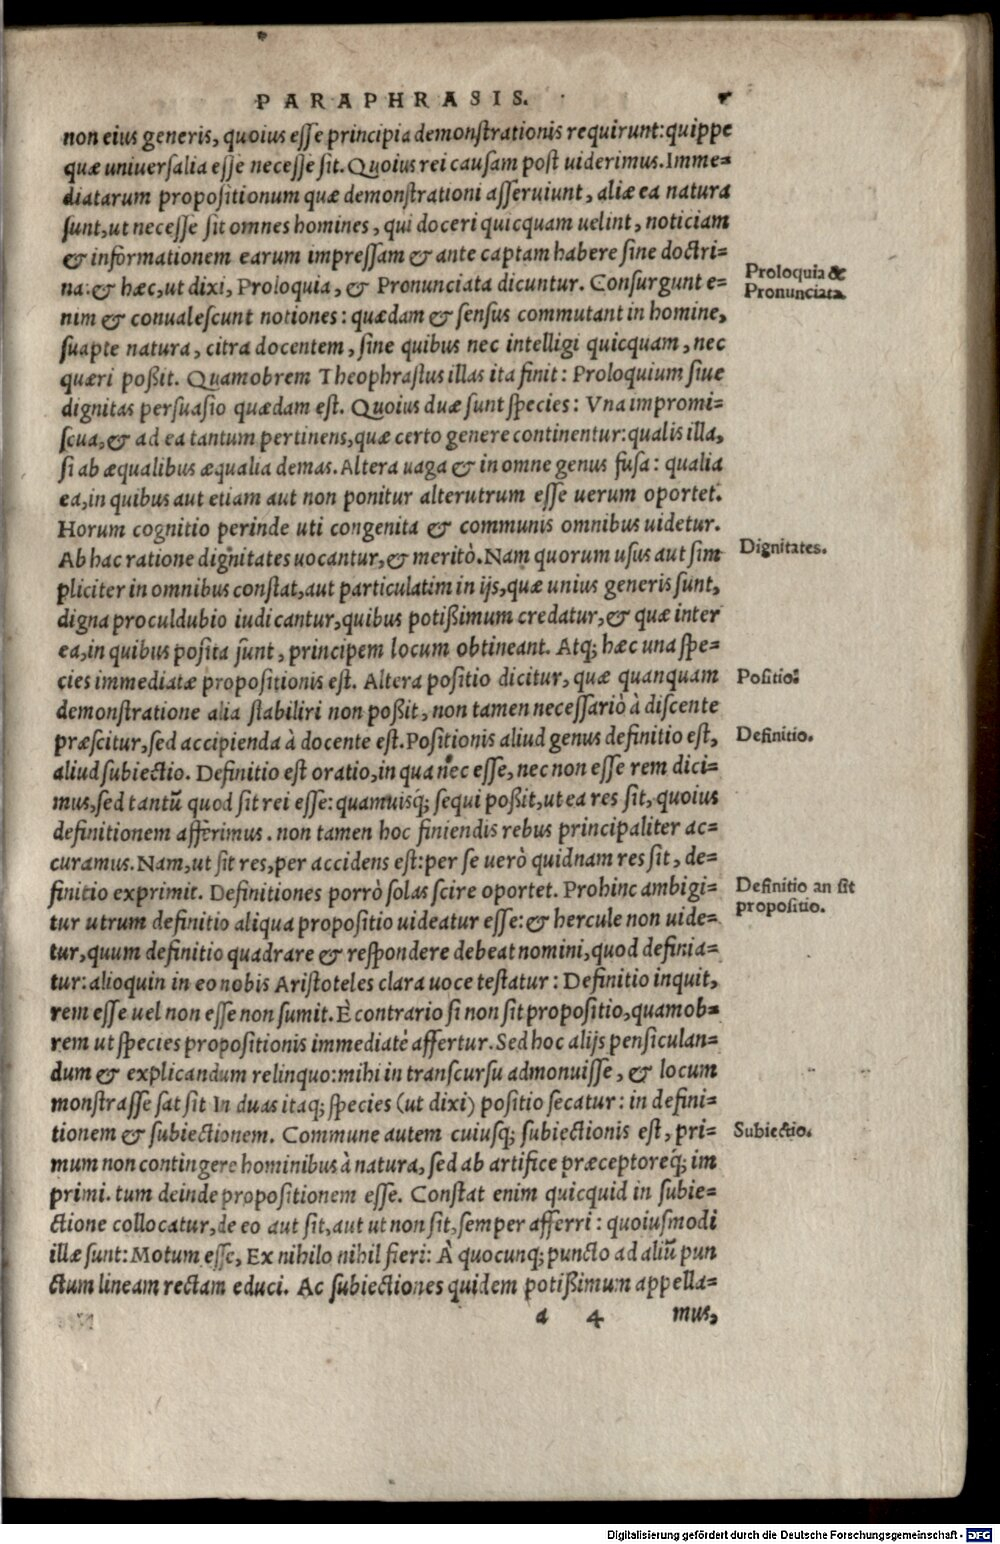 PARAPHRASIS.
non eius generis, quoius esse principia demonstrationis requirunt: quippe
quæ universalia esse necesse sit. Quoius rei causam post uiderimus. Imme-
diatarum propositionum quæ demonstrationi asseruiunt, aliæ ea natura
sunt, ut necesse sit omnes homines, qui doceri quicquam uelint, noticiam
& informationem earum impressam & ante captam habere sine doctri-
na: & hæc, ut dixi, Proloquia, & Pronunciata dicuntur. Consurgunt e-
Proloquia &
Pronunciata.
nim & conualescunt notiones: quædam & sensus commutant in homine,
suapte natura, citra docentem, sine quibus nec intelligi quicquam, nec
quæri poßit. Quamobrem Theophrastus illas ita finit: Proloquium siue
dignitas persuasio quædam est. Quoius duæ sunt species: Vna impromi-
scua, & ad ea tantum pertinens, quæ certo genere continentur: qualis illa,
si ab æqualibus æqualia demas. Altera uaga & in omne genus fusa: qualia
ea, in quibus aut etiam aut non ponitur alterutrum esse uerum oportet.
Horum cognitio perinde uti congenita & communis omnibus uidetur.
Ab hac ratione dignitates uocantur, & meritò. Nam quorum usus aut sim
Dignitates.
pliciter in omnibus constat, aut particulatim in ijs, quæ unius generis sunt,
digna proculdubio iudicantur, quibus potißimum credatur, & quæ inter
ea, in quibus posita sunt, principem locum obtineant. Atq; hæc una spe-
cies immediatæ propositionis est. Altera positio dicitur, quæ quanquam
Positio:
demonstratione alia stabiliri non poßit, non tamen necessariò à discente
præscitur, sed accipienda à docente est. Positionis aliud genus definitio est,
Definitio.
aliud subiectio. Definitio est oratio, in qua nec esse, nec non esse rem dici-
mus, sed tantũ quod sit rei esse: quamuisq́; sequi poßit, ut ea res sit, quoius
definitionem afferimus. non tamen hoc finiendis rebus principaliter ac-
curamus. Nam, ut sit res, per accidens est: per se uerò quidnam res sit, de-
finitio exprimit. Definitiones porrò solas scire oportet. Prohinc ambigi-
Definitio an sit
propositio.
tur utrum definitio aliqua propositio uideatur esse: & hercule non uide-
tur, quum definitio quadrare & respondere debeat nomini, quod definia-
tur: alioquin in eo nobis Aristoteles clara uoce testatur: Definitio inquit,
rem esse uel non esse non sumit. È contrario si non sit propositio, quamob-
rem ut species propositionis immediatè affertur. Sed hoc alijs pensiculan-
dum & explicandum relinquo: mihi in transcursu admonuisse, & locum
monstrasse sat sit In duas itaq; species (ut dixi) positio secatur: in defini-
tionem & subiectionem. Commune autem cuiusq; subiectionis est, pri-
Subiectio.
mum non contingere hominibus à natura, sed ab artifice præceptoreq́; im
primi. tum deinde propositionem esse. Constat enim quicquid in subie-
ctione collocatur, de eo aut sit, aut ut non sit, semper afferri: quoiusmodi
illæ sunt: Motum esse, Ex nihilo nihil fieri: À quocunq; puncto ad aliũ pun
ctum lineam rectam educi. Ac subiectiones quidem potißimum appella-
a 4 mus,
Digitalisierung gefördert durch die Deutsche Forschungsgemeinschaft - DFG